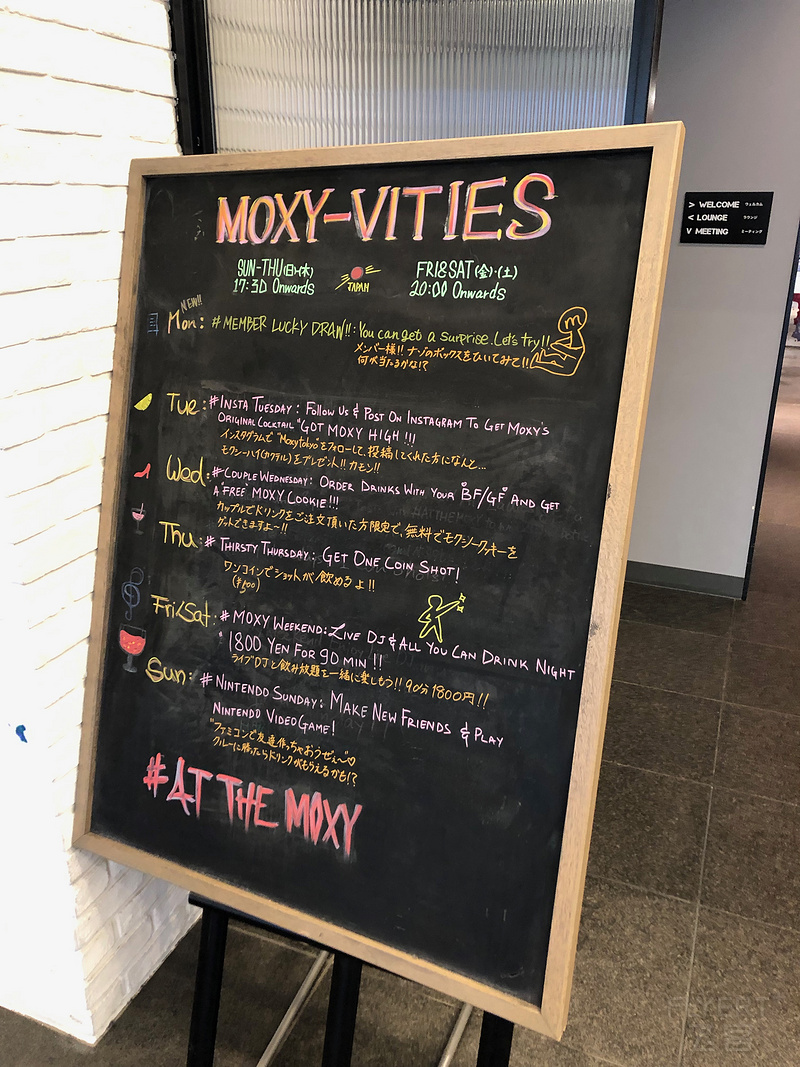 MOXY-VITIES
SUN-THU(日)-(木)
17:30 Onwards
JAPAN
FRI&SAT(金)・(土)
20:00 Onwards
NEW!!
Mon: #MEMBER LUCKY DRAW!!: You can get a surprise. Let's try!!
メンバー様!! ナゾのボックスをひいてみて!!
何が当たるかな!?
m
Tue: #INSTA TUESDAY: FOLLOW US & POST ON INSTAGRAM TO GET MOXY'S
ORIGINAL COCKTAIL "GOT MOXY HIGH!!!
インスタグラムで"Moxytokyo"をフォローして、投稿してくれた方になんと...
モクシーハイ(カクテル)をプレゼント!! カモン!!
Wed: #COUPLE WEDNESDAY: ORDER DRINKS WITH YOUR BF/GF AND GET
A "FREE" MOXY COOKIE!!!
カップルでドリンクをご注文頂いた方限定で、無料でモクシークッキーを
ゲットできますよ~!!
Thu: #THIRSTY THURSDAY: GET ONE COIN SHOT!
ワンコインでショットが飲めるよ!!
(¥500)
Fri/Sat: #MOXY WEEKEND: LIVE DJ & ALL YOU CAN DRINK NIGHT
1800 YEN FOR 90 MIN!!
ライブDJと飲み放題を一緒に楽しもう!! 90分1800円!!
Sun: #NINTENDO SUNDAY: MAKE NEW FRIENDS & PLAY
NINTENDO VIDEO GAME!
ファミコンで友達作っちゃおうぜぇ~♡
クルーに勝ったらドリンクがもらえるかも!?
#AT THE MOXY
> WELCOME ウェルカム
< LOUNGE ラウンジ
V MEETING ミーティング